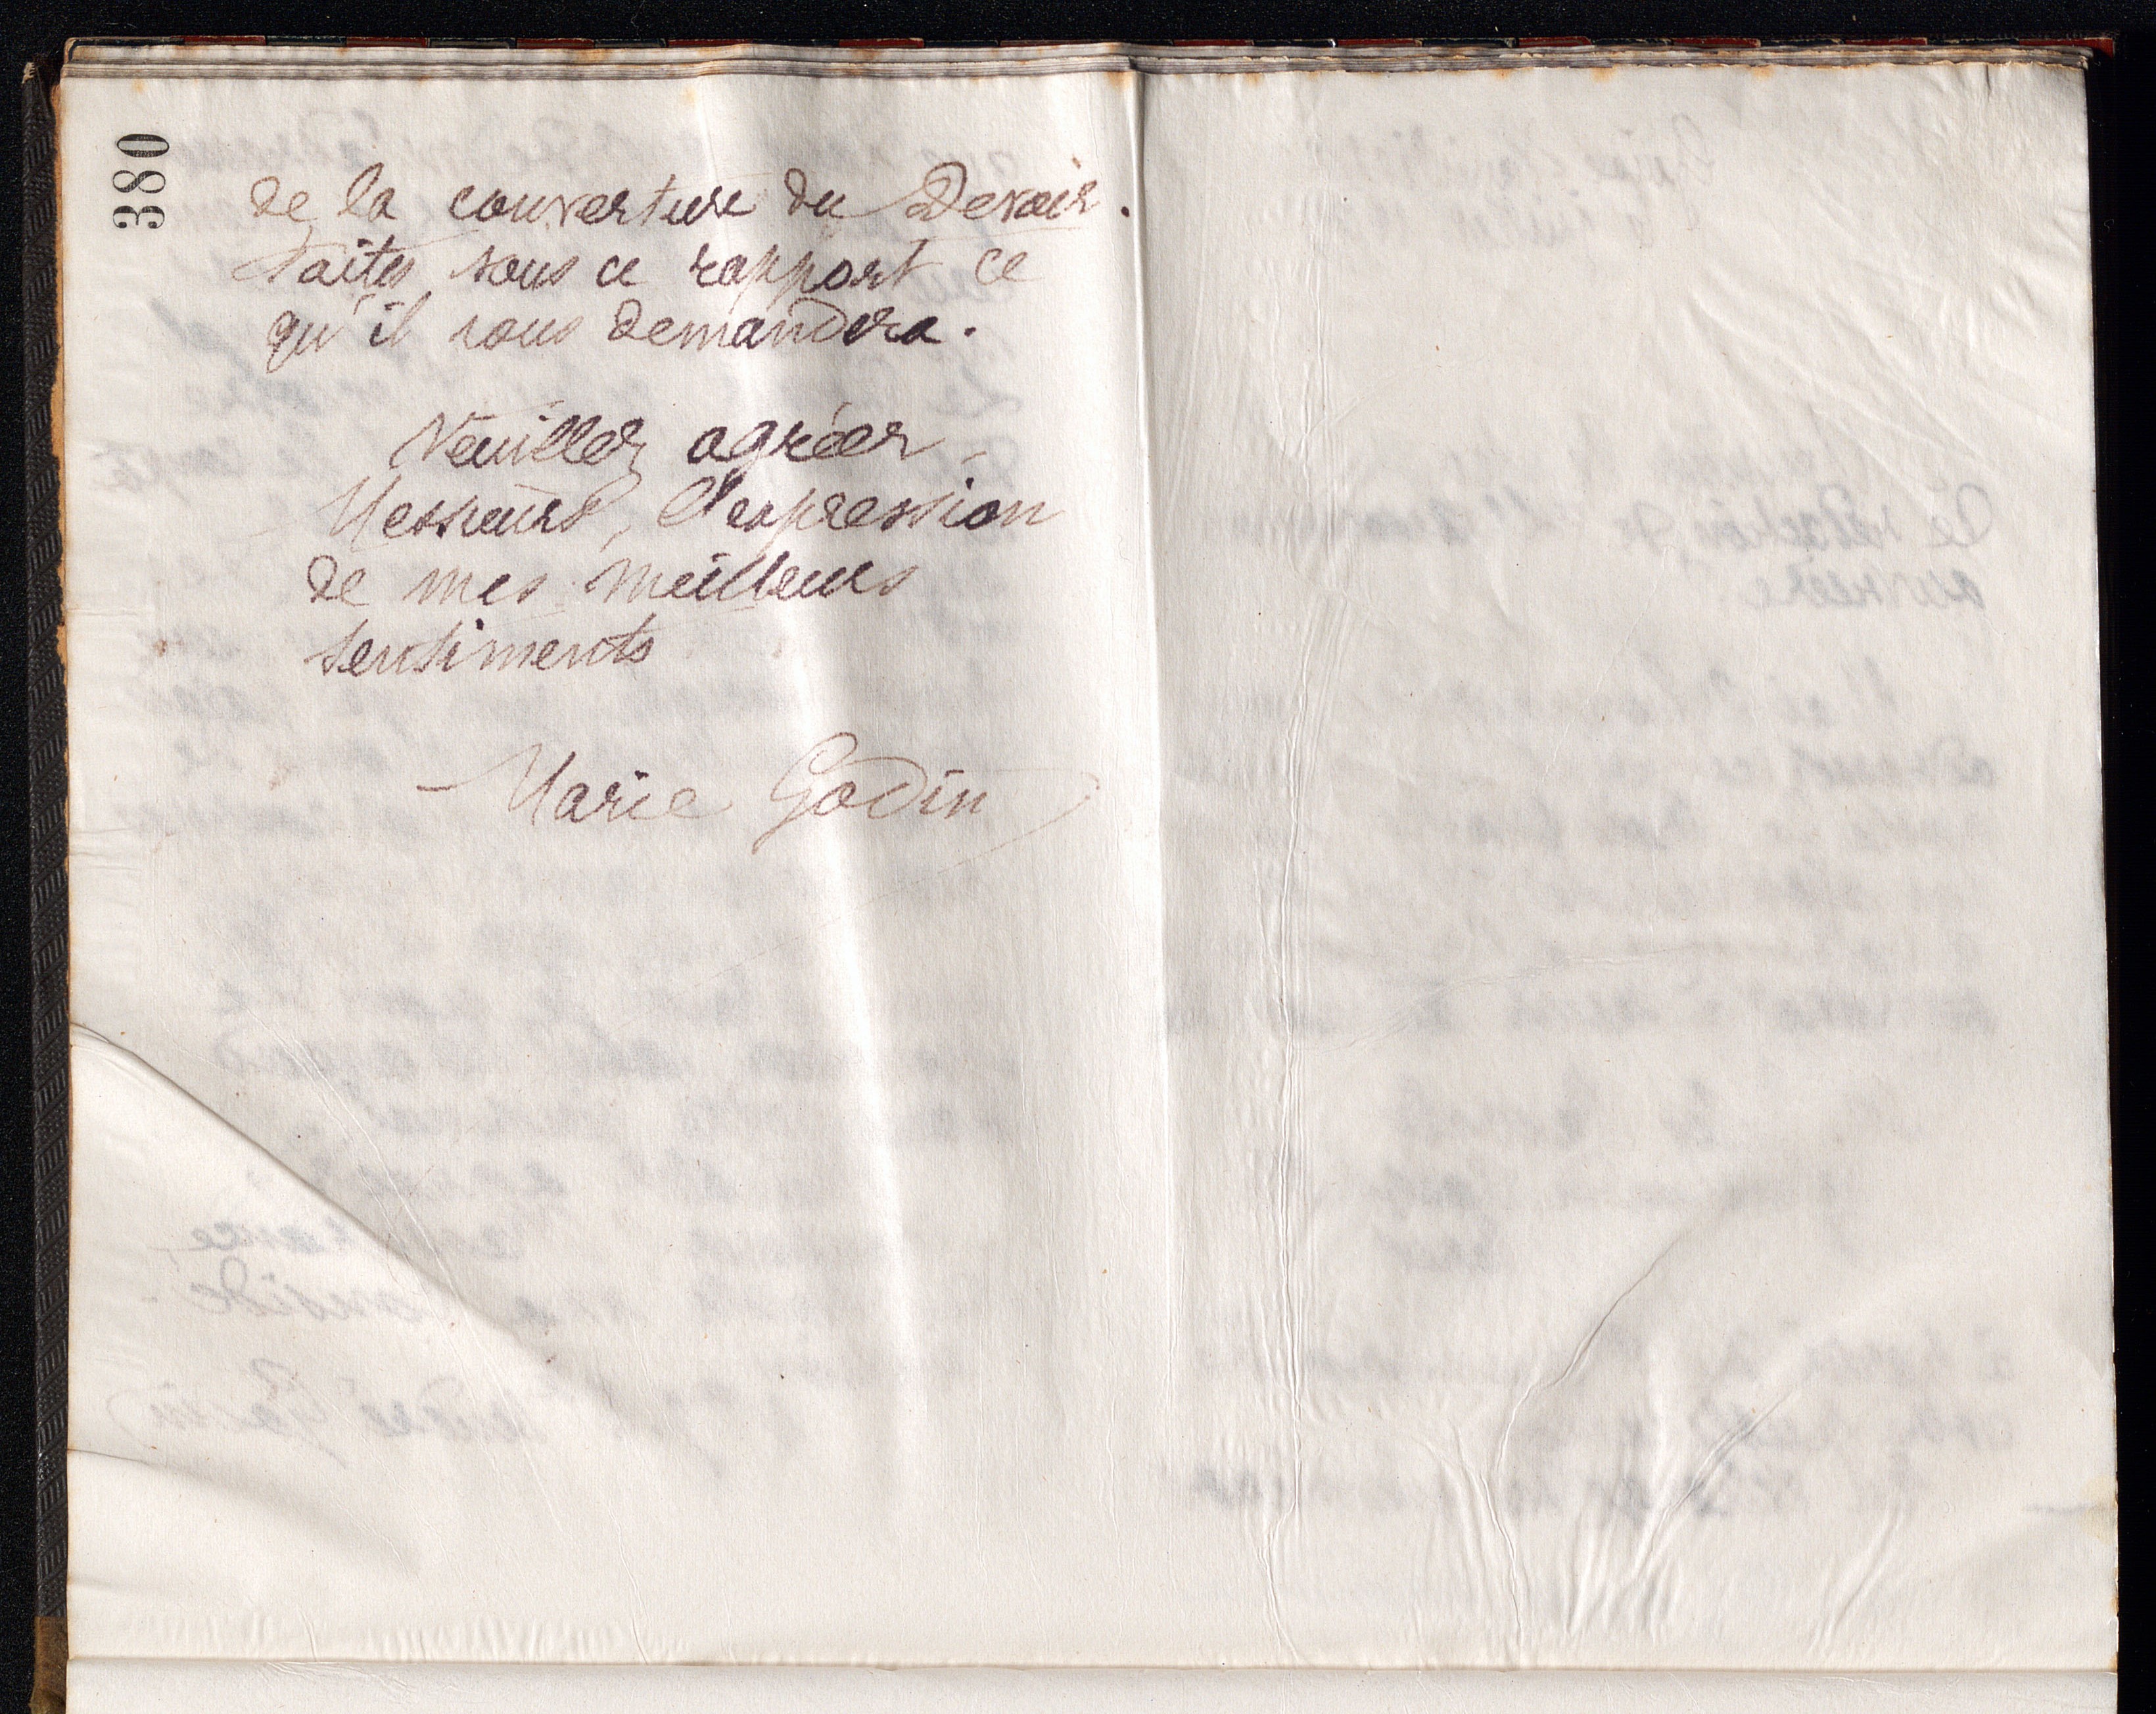 380
de la couverture du Devoir.
Faites sous ce rapport ce
qu'il vous demandera.
Veuillez agréer,
Messieurs, l'expression
de mes meilleurs
sentiments
Marie Godin